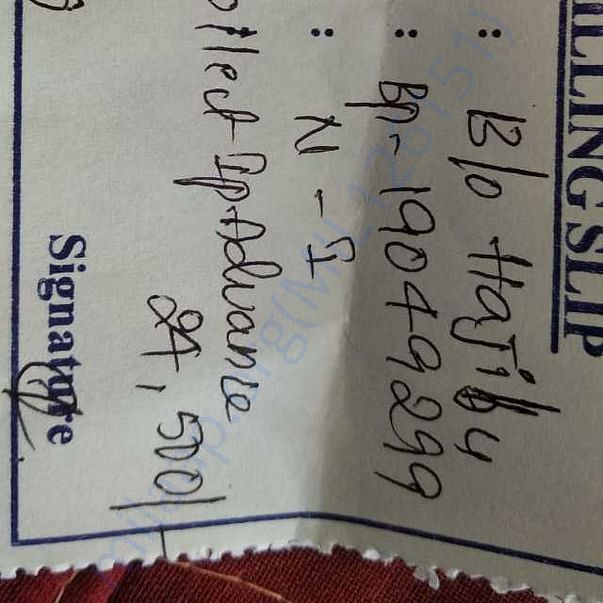 ILLING SLIP
: B/o Hajiby
: BP-19049299
: N - I
ollect Ip Advance
24,500/-
Signature